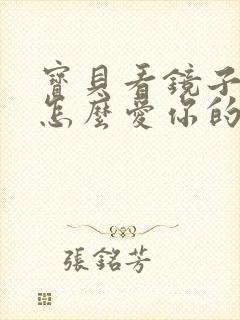 寶貝看鏡子
怎麼愛你的
張銘芳